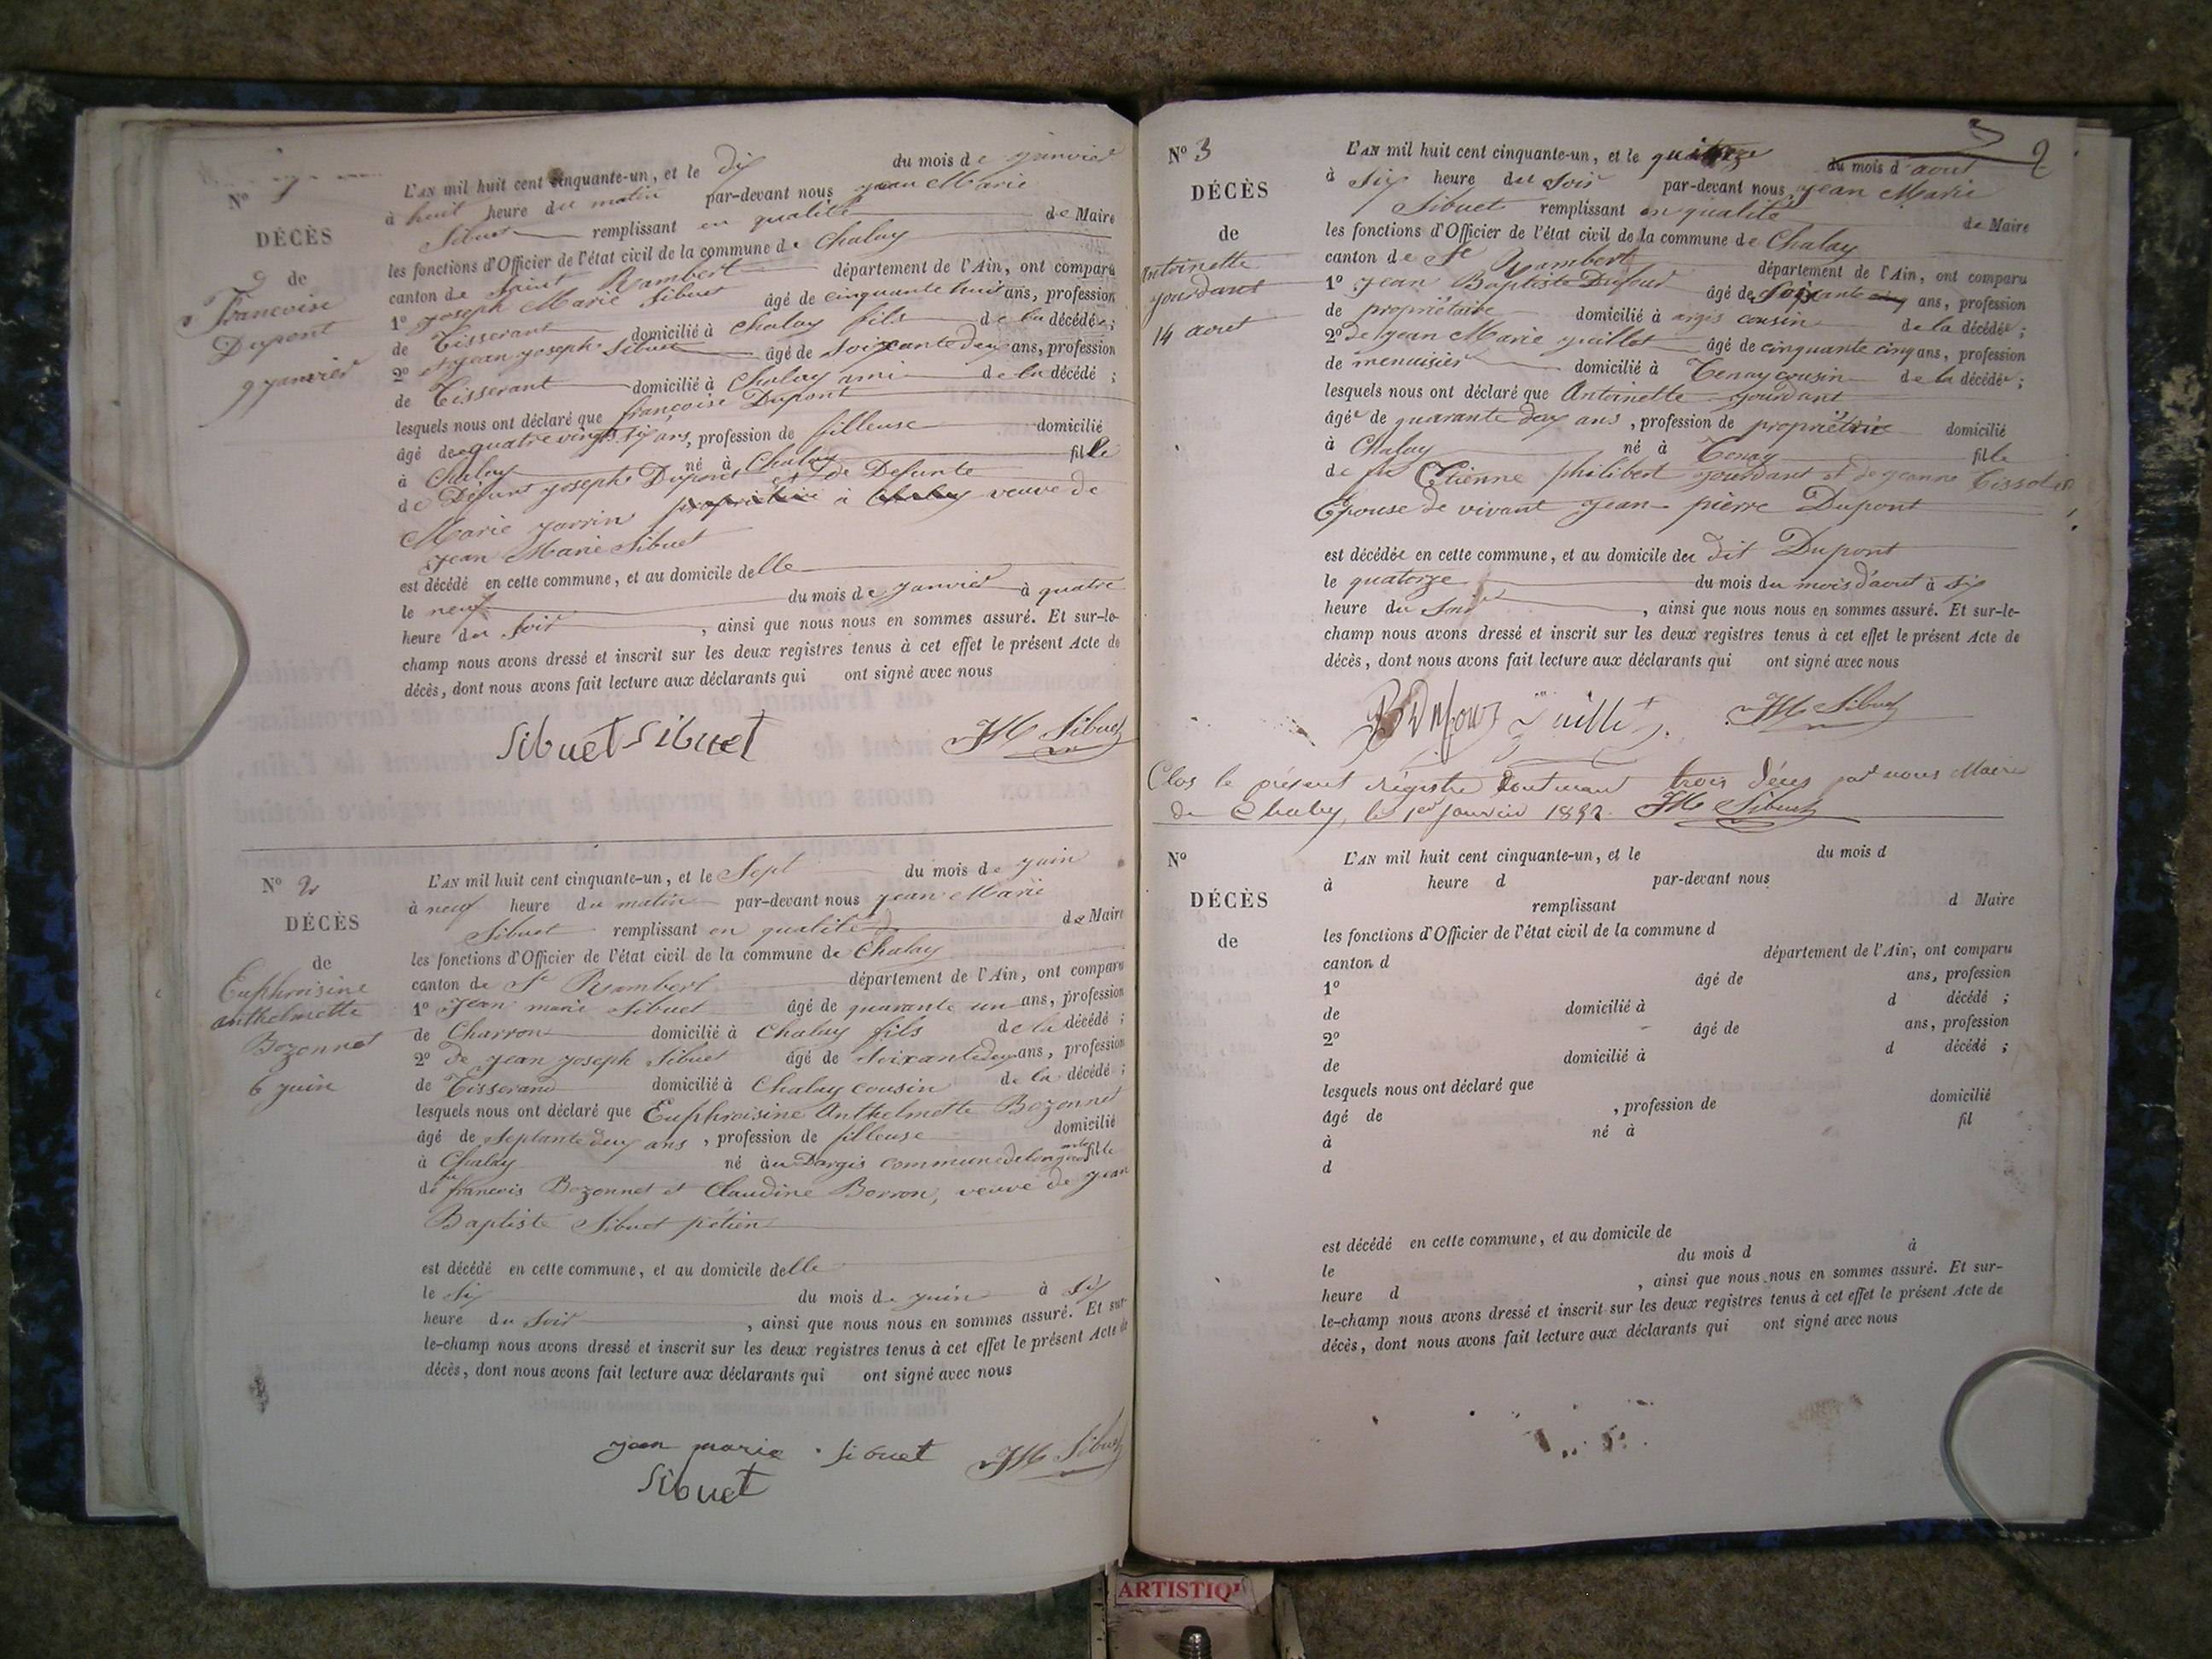 N° 1
DÉCÈS
de
Francoise
Dupont
9 janvier
L'AN mil huit cent cinquante-un, et le dix du mois de janvier
à huit heure du matin par-devant nous jean Marie
Sibuet remplissant en qualité de Maire
les fonctions d'Officier de l'état civil de la commune de Chalay
canton de Saint Rambert département de l'Ain, ont comparu
1° joseph Marie Sibuet âgé de cinquante huit ans, profession
de Tisserant domicilié à Chalay fils de la décédée ;
2° et jean joseph Sibuet âgé de Soixante deux ans, profession
de Tisserant domicilié à Chalay ami de la décédé ;
lesquels nous ont déclaré que françoise Dupont
âgé de quatre vingt six ans, profession de filleuse domicilié
à Chalay né à Chalay fille
de Défunt joseph Dupont et de Défunte
Marie jarrin propriétaire à Chalay veuve de
jean Marie Sibuet
est décédé en cette commune, et au domicile delle
le neuf du mois de janvier à quatre
heure du Soir , ainsi que nous nous en sommes assuré. Et sur-le-
champ nous avons dressé et inscrit sur les deux registres tenus à cet effet le présent Acte de
décès, dont nous avons fait lecture aux déclarants qui ont signé avec nous
Sibuet Sibuet JM Sibuet
N° 2
DÉCÈS
de
Euphroisine
anthelmette
Bozonnet
6 juin
L'AN mil huit cent cinquante-un, et le Sept du mois de juin
à neuf heure du matin par-devant nous jean Marie
Sibuet remplissant en qualité de Maire
les fonctions d'Officier de l'état civil de la commune de Chalay
canton de St Rambert département de l'Ain, ont comparu
1° jean marie Sibuet âgé de quarante un ans, profession
de Charron domicilié à Chalay fils de la décédé ;
2° de jean joseph Sibuet âgé de Soixante deux ans, profession
de Tisserand domicilié à Chalay cousin de la décédé ;
lesquels nous ont déclaré que Euphroisine Anthelmette Bozonnet
âgé de Septante deux ans , profession de filleuse domicilié
à Chalay né à Dargis commune de fille
de francois Bozonnet et Claudine Borron, veuve de jean
Baptiste Sibuet
est décédé en cette commune, et au domicile delle
le Six du mois de juin à Six
heure du Soir , ainsi que nous nous en sommes assuré. Et sur-
le-champ nous avons dressé et inscrit sur les deux registres tenus à cet effet le présent Acte de
décès, dont nous avons fait lecture aux déclarants qui ont signé avec nous
jean marie Sibuet JM Sibuet
Sibuet
2
N° 3
DÉCÈS
de
Antoinette
jourdant
14 aout
L'AN mil huit cent cinquante-un, et le quinze du mois d'aout
à Six heure du Soir par-devant nous jean Marie
Sibuet remplissant en qualité de Maire
les fonctions d'Officier de l'état civil de la commune de Chalay
canton de St Rambert département de l'Ain, ont comparu
1° jean Baptiste Dufour âgé de Soixante cinq ans, profession
de propriétaire domicilié à argis cousin de la décédée ;
2° de jean Marie juillet âgé de cinquante cinq ans, profession
de menuisier domicilié à Tenay cousin de la décédée ;
lesquels nous ont déclaré que Antoinette jourdant
âgée de quarante deux ans , profession de propriétaire domicilié
à Chalay né à Tenay fille
de feu Etienne philibert jourdant et de jeanne Tissot
Epouse de vivant jean pierre Dupont
est décédée en cette commune, et au domicile du dit Dupont
le quatorze du mois du mois d'aout à Six
heure du Soir , ainsi que nous nous en sommes assuré. Et sur-le-
champ nous avons dressé et inscrit sur les deux registres tenus à cet effet le présent Acte de
décès, dont nous avons fait lecture aux déclarants qui ont signé avec nous
B Dufour juillet JM Sibuet
Clos le présent régistre contenant trois décès par nous Maire
de Chaley, le 1er janvier 1852. JM Sibuet
N°
DÉCÈS
de
L'AN mil huit cent cinquante-un, et le du mois d
à heure d par-devant nous
remplissant d Maire
les fonctions d'Officier de l'état civil de la commune d
canton d département de l'Ain, ont comparu
1° âgé de ans, profession
de domicilié à d décédé ;
2° âgé de ans, profession
de domicilié à d décédé ;
lesquels nous ont déclaré que
âgé de , profession de domicilié
à né à fil
d
est décédé en cette commune, et au domicile de
le du mois d à
heure d , ainsi que nous nous en sommes assuré. Et sur-
le-champ nous avons dressé et inscrit sur les deux registres tenus à cet effet le présent Acte de
décès, dont nous avons fait lecture aux déclarants qui ont signé avec nous
ARTISTIQ